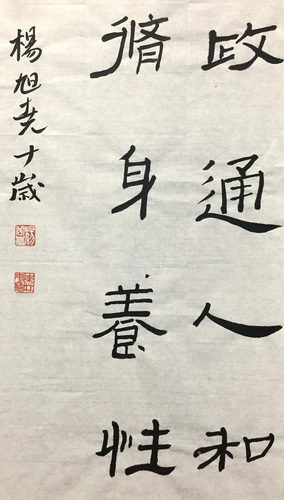 政通人和
脩身養性
楊旭堯十歲